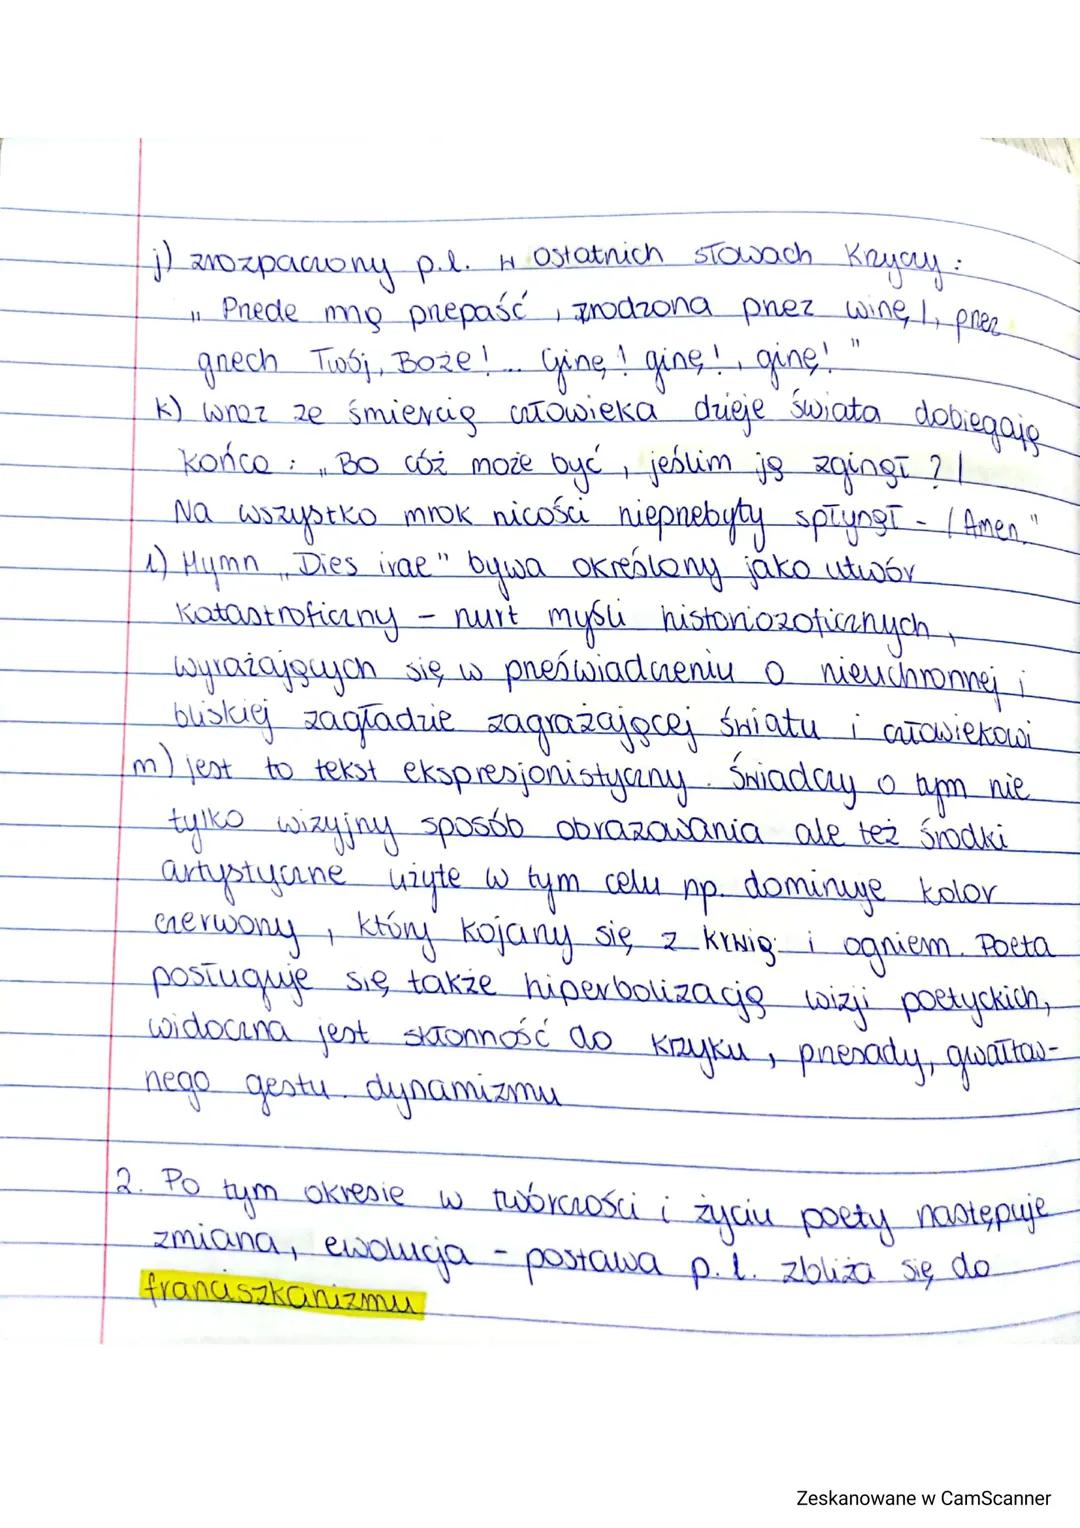 j) zrozpaczony p.l. w ostatnich słowach krzyczy:
„Przede mną przepaść, zrodzona przez winę, |, przez
grzech Twój, Boże!... Ginę! ginę!, ginę!"
k) wraz ze śmiercią człowieka dzieje świata dobiegają
końca: „Bo cóż może być, jeślim ja zginął? |
Na wszystko mrok nicości nieprzebyty spłynął - | Amen."
l) Hymn „Dies irae" bywa określany jako utwór
katastroficzny - nurt myśli historiozoficznych,
wyrażających się w przeświadczeniu o nieuchronnej i
bliskiej zagładzie zagrażającej światu i człowiekowi
m) jest to tekst ekspresjonistyczny. Świadczy o tym nie
tylko wizyjny sposób obrazowania ale też środki
artystyczne użyte w tym celu np. dominuje kolor
czerwony, który kojarzy się z krwią i ogniem. Poeta
posługuje się także hiperbolizacją wizji poetyckich,
widoczna jest skłonność do krzyku, przesady, gwałtow-
nego gestu. dynamizmu
2. Po tym okresie w twórczości i życiu poety następuje
zmiana, ewolucja - postawa p.l. zbliża się do
franciszkanizmu
Zeskanowane w CamScanner